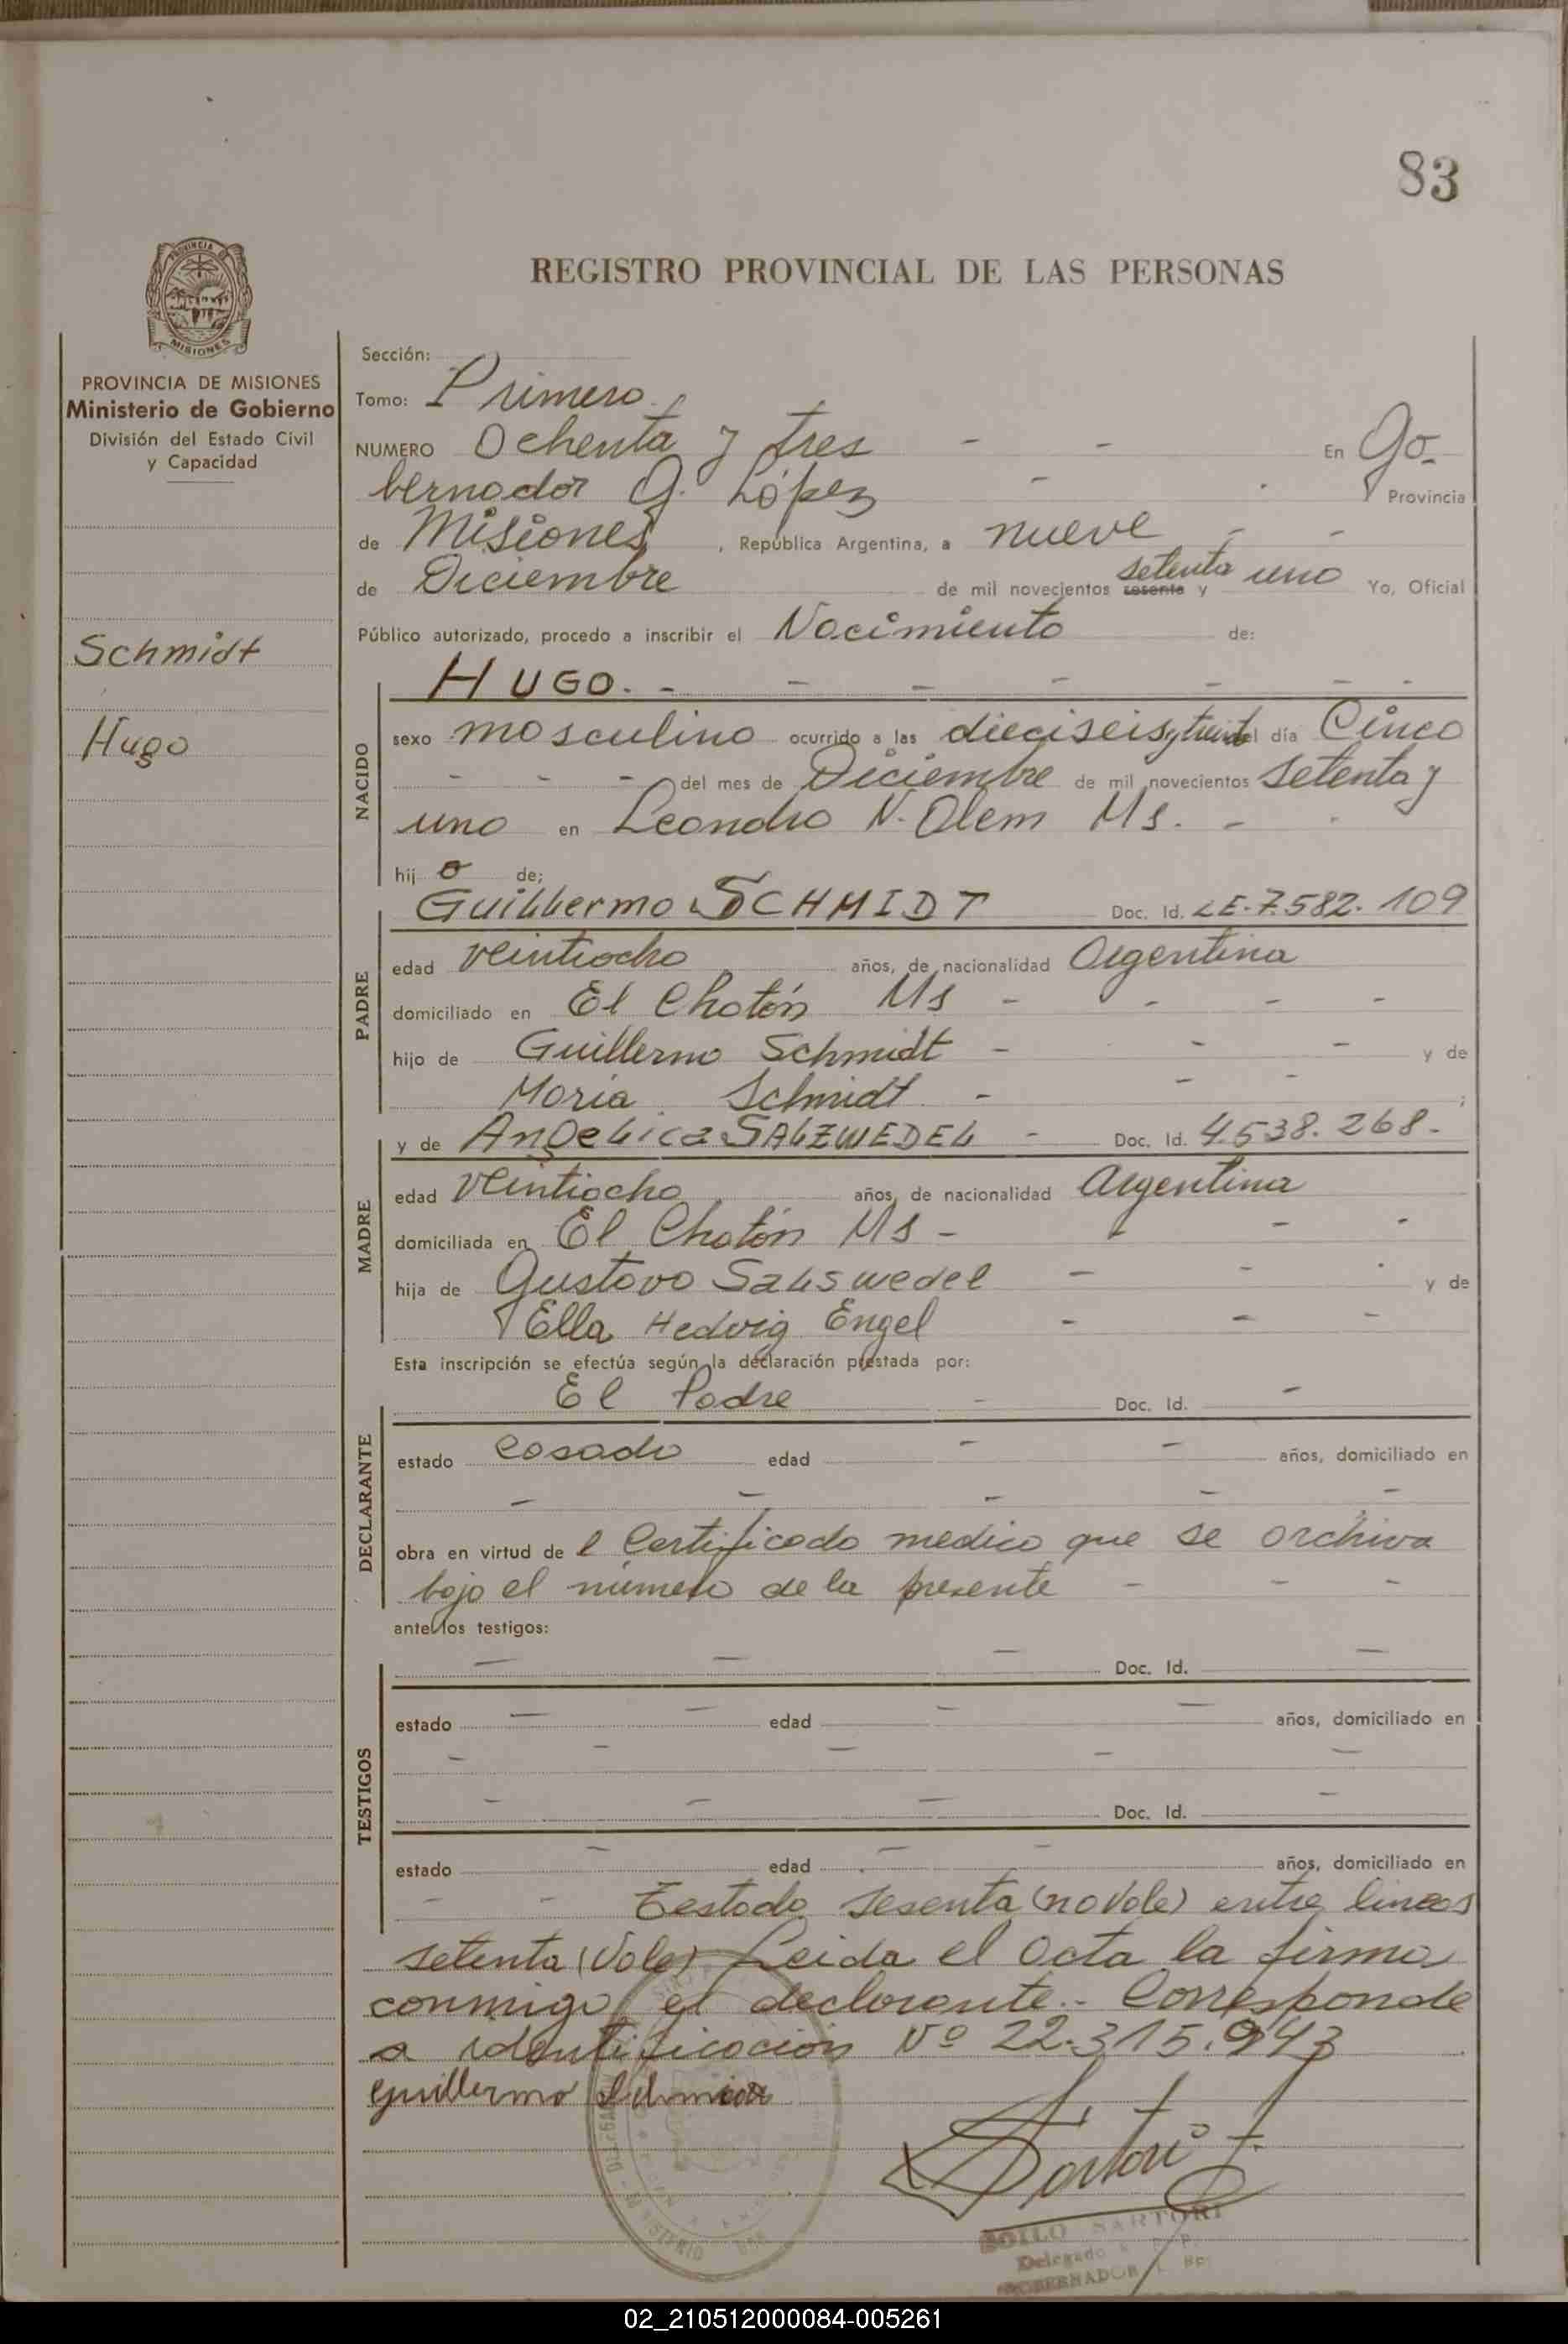 83
REGISTRO PROVINCIAL DE LAS PERSONAS
PROVINCIA DE MISIONES
Ministerio de Gobierno
División del Estado Civil
y Capacidad
Schmidt
Hugo
Sección:
Tomo: Primero
NUMERO Ochenta y tres - - En Go-
bernador G. López - Provincia
de Misiones, República Argentina, a nueve - -
de Diciembre de mil novecientos sesenta setenta y uno Yo, Oficial
Público autorizado, procedo a inscribir el Nacimiento de:
HUGO. - - - - - - -
NACIDO
sexo masculino ocurrido a las dieciseis y treinta del día Cinco
- - - del mes de Diciembre de mil novecientos setenta y
uno en Leandro N. Alem Ms. -
hij o de;
Guillermo SCHMIDT Doc. Id. LE-7.582.109
PADRE
edad veintiocho años, de nacionalidad Argentina
domiciliado en El Chatón Ms - - - -
hijo de Guillermo Schmidt - - - y de
Maria Schmidt - - - ;
y de Angelica SALZWEDEL - Doc. Id. 4.538.268.-
MADRE
edad veintiocho años, de nacionalidad Argentina
domiciliada en El Chatón Ms - - -
hija de Gustavo Salswedel - - y de
Ella Hedvig Engel - - -
Esta inscripción se efectúa según la declaración prestada por:
El Padre - Doc. Id. -
DECLARANTE
estado Casado edad - - años, domiciliado en
- - - - -
obra en virtud de l Certificado medico que se archiva
bajo el número de la presente - - -
ante los testigos:
- - - Doc. Id. -
TESTIGOS
estado - - edad - - años, domiciliado en
- - - - -
- - - Doc. Id. -
estado - edad - - años, domiciliado en
- - Testado sesenta (no Vale) entre lineas
setenta (Vale) Leida el Acta la firma
conmigo el declarante.- Corresponde
a identificación Nº 22.315.943
Guillermo Schmidt
Sartori
SARTORI
Delegado
GOBERNADOR
02_210512000084-005261